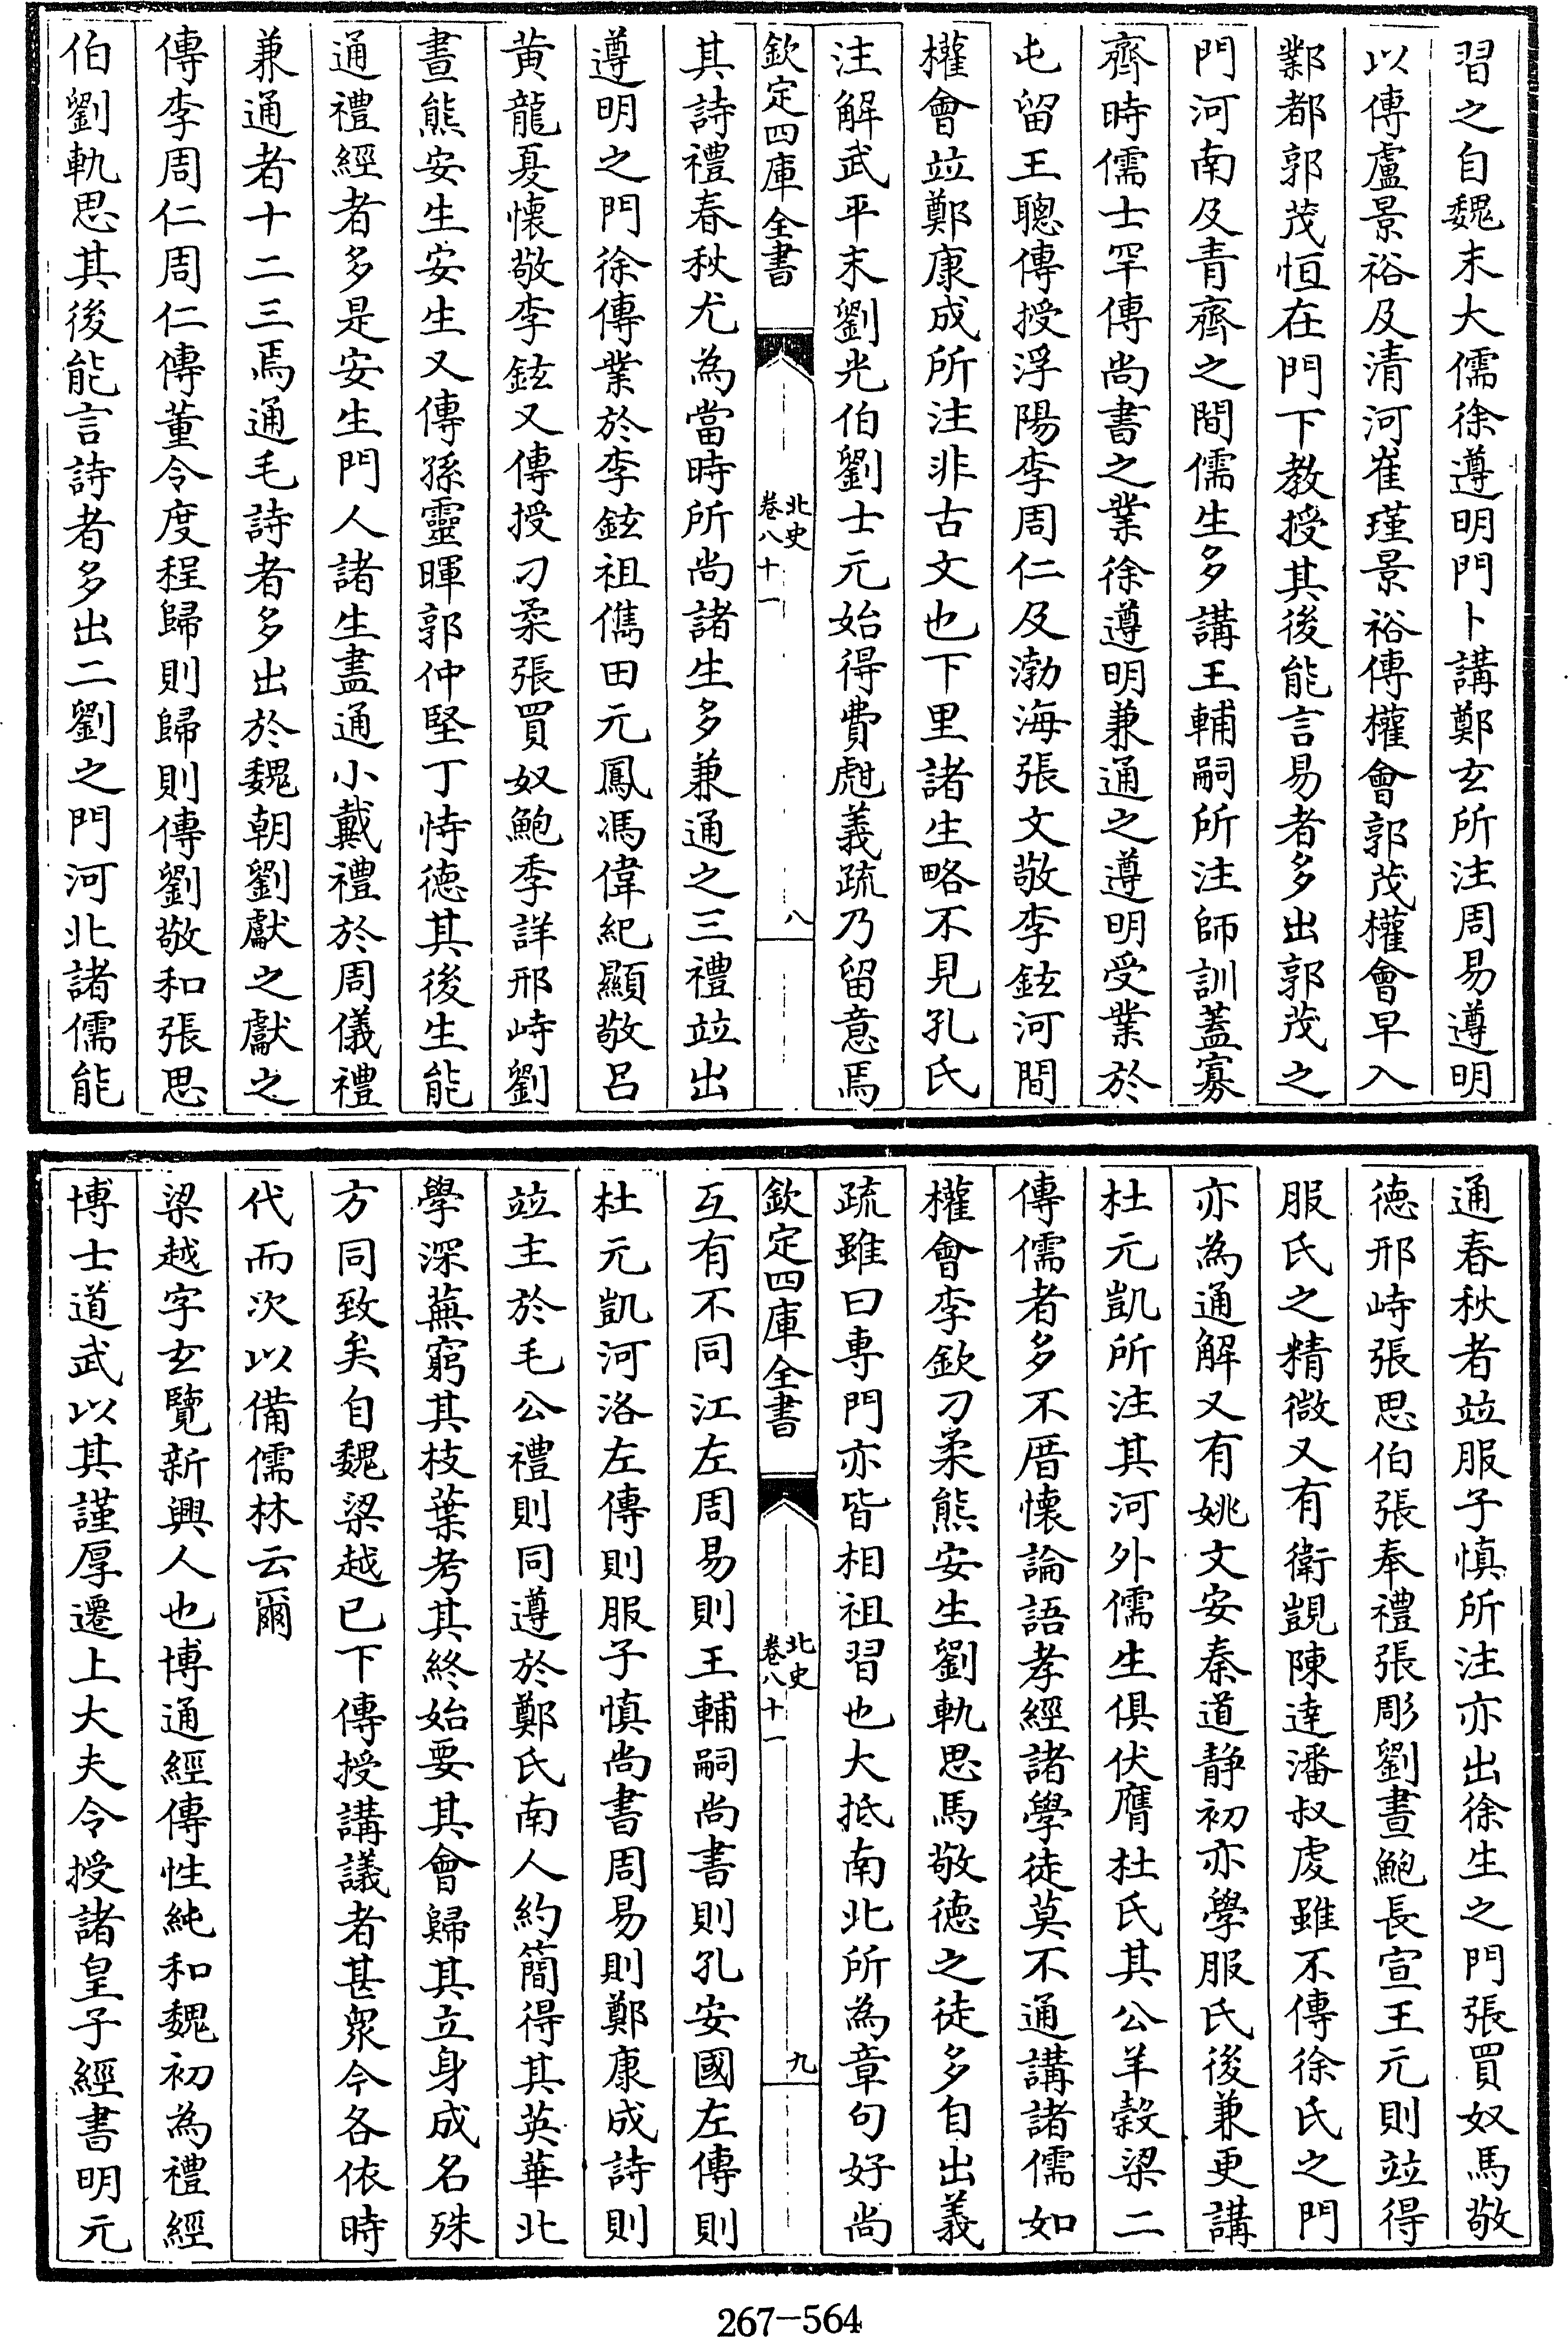 習之自魏末大儒徐遵明門卜講鄭玄所注周易遵明
以傳盧景裕及清河崔瑾景裕傳權會郭茂權會早入
鄴都郭茂恒在門下教授其後能言易者多出郭茂之
門河南及青齊之間儒生多講王輔嗣所注師訓蓋寡
齊時儒士罕傳尚書之業徐遵明兼通之遵明受業於
屯留王聰傳授浮陽李周仁及渤海張文敬李鉉河間
權會竝鄭康成所注非古文也下里諸生略不見孔氏
注解武平末劉光伯劉士元始得費甝義疏乃留意焉
欽定四庫全書
北史
卷八十一
八
其詩禮春秋尤為當時所尚諸生多兼通之三禮竝出
遵明之門徐傳業於李鉉祖儁田元鳳馮偉紀顯敬呂
黄龍夏懷敬李鉉又傳授刁柔張買奴鮑季詳邢峙劉
晝熊安生安生又傳孫靈暉郭仲堅丁恃徳其後生能
通禮經者多是安生門人諸生盡通小戴禮於周儀禮
兼通者十二三焉通毛詩者多出於魏朝劉獻之獻之
傳李周仁周仁傳董令度程歸則歸則傳劉敬和張思
伯劉軌思其後能言詩者多出二劉之門河北諸儒能
通春秋者竝服子慎所注亦出徐生之門張買奴馬敬
徳邢峙張思伯張奉禮張彫劉晝鮑長宣王元則竝得
服氏之精微又有衛覬陳逹潘叔虔雖不傳徐氏之門
亦為通解又有姚文安秦道静初亦學服氏後兼更講
杜元凱所注其河外儒生俱伏膺杜氏其公羊穀梁二
傳儒者多不厝懷論語孝經諸學徒莫不通講諸儒如
權會李欽刁柔熊安生劉軌思馬敬徳之徒多自出義
疏雖曰專門亦皆相祖習也大抵南北所為章句好尚
欽定四庫全書
北史
卷八十一
九
互有不同江左周易則王輔嗣尚書則孔安國左傳則
杜元凱河洛左傳則服子慎尚書周易則鄭康成詩則
竝主於毛公禮則同遵於鄭氏南人約簡得其英華北
學深蕪窮其枝葉考其終始要其會歸其立身成名殊
方同致矣自魏梁越已下傳授講議者甚衆今各依時
代而次以備儒林云爾
梁越字玄覽新興人也博通經傳性純和魏初為禮經
博士道武以其謹厚遷上大夫令授諸皇子經書明元
267-564